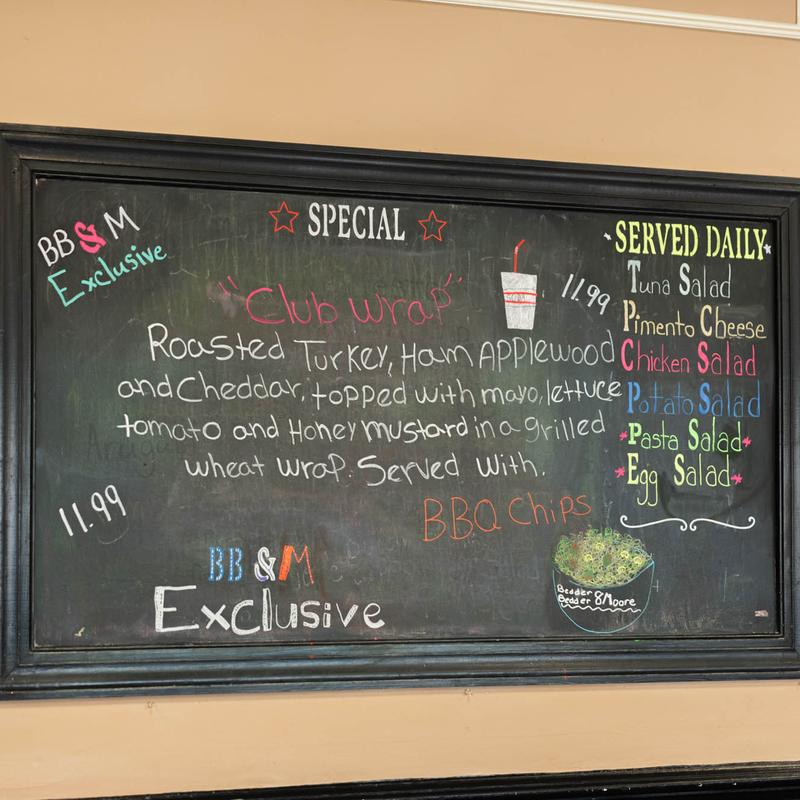 BB & M
Exclusive
SPECIAL
"Club wrap"
11.99
Roasted Turkey, Ham Applewood
and Cheddar, topped with mayo, lettuce
tomato and Honey mustard in a grilled
wheat wrap. Served with.
BBQ Chips
11.99
BB & M
Exclusive
SERVED DAILY
Tuna Salad
Pimento Cheese
Chicken Salad
Potato Salad
Pasta Salad
Egg Salad
Bedder
Bedder & Moore